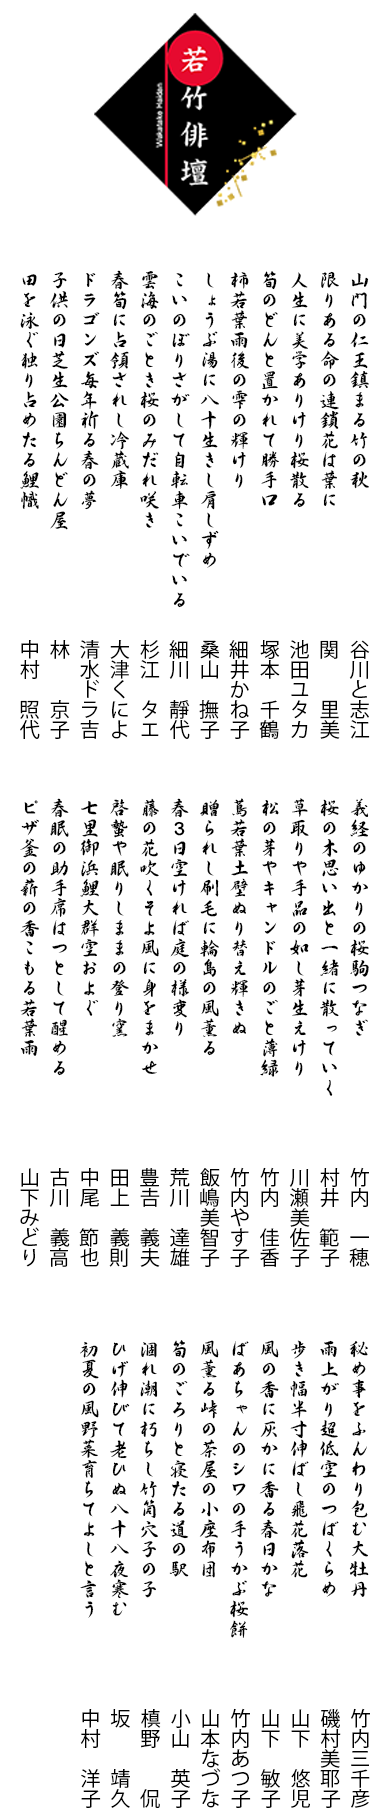 若竹俳壇
Wakatake Haidan
山門の仁王鎮まる竹の秋
谷川と志江
限りある命の連鎖花は葉に
関 里美
人生に美学ありけり桜散る
池田ユタカ
筍のどんと置かれて勝手口
塚本 千鶴
柿若葉雨後の雫の輝けり
細井かね子
しょうぶ湯に八十生きし肩しずめ
桑山 撫子
こいのぼりさがして自転車こいでいる
細川 靜代
雲海のごとき桜のみだれ咲き
杉江 タエ
春筍に占領されし冷蔵庫
大津くによ
ドラゴンズ毎年祈る春の夢
清水ドラ吉
子供の日芝生公園ちんどん屋
林 京子
田を泳ぐ独り占めたる鯉幟
中村 照代
義経のゆかりの桜駒つなぎ
竹内 一穂
桜の木思い出と一緒に散っていく
村井 範子
草取りや手品の如し芽生えけり
川瀬美佐子
松の芽やキャンドルのごと薄緑
竹内 佳香
蔦若葉土壁ぬり替え輝きぬ
竹内やす子
贈られし刷毛に輪島の風薫る
飯嶋美智子
春3日空ければ庭の様変り
荒川 達雄
藤の花吹くそよ風に身をまかせ
豊吉 義夫
啓蟄や眠りしままの登り窯
田上 義則
七里御浜鯉大群空およぐ
中尾 節也
春眠の助手席はっとして醒める
古川 義高
ピザ釜の薪の香こもる若葉雨
山下みどり
秘め事をふんわり包む大牡丹
竹内三千彦
雨上がり超低空のつばくらめ
磯村美耶子
歩き幅半寸伸ばし飛花落花
山下 悠児
風の香に灰かに香る春日かな
山下 敏子
ばあちゃんのシワの手うかぶ桜餅
竹内あつ子
風薫る峠の茶屋の小座布団
山本なづな
筍のごろりと寝たる道の駅
小山 英子
涸れ潮に朽ちし竹筒穴子の子
槙野 侃
ひげ伸びて老ひぬ八十八夜寒む
坂 靖久
初夏の風野菜育ちてよしと言う
中村 洋子